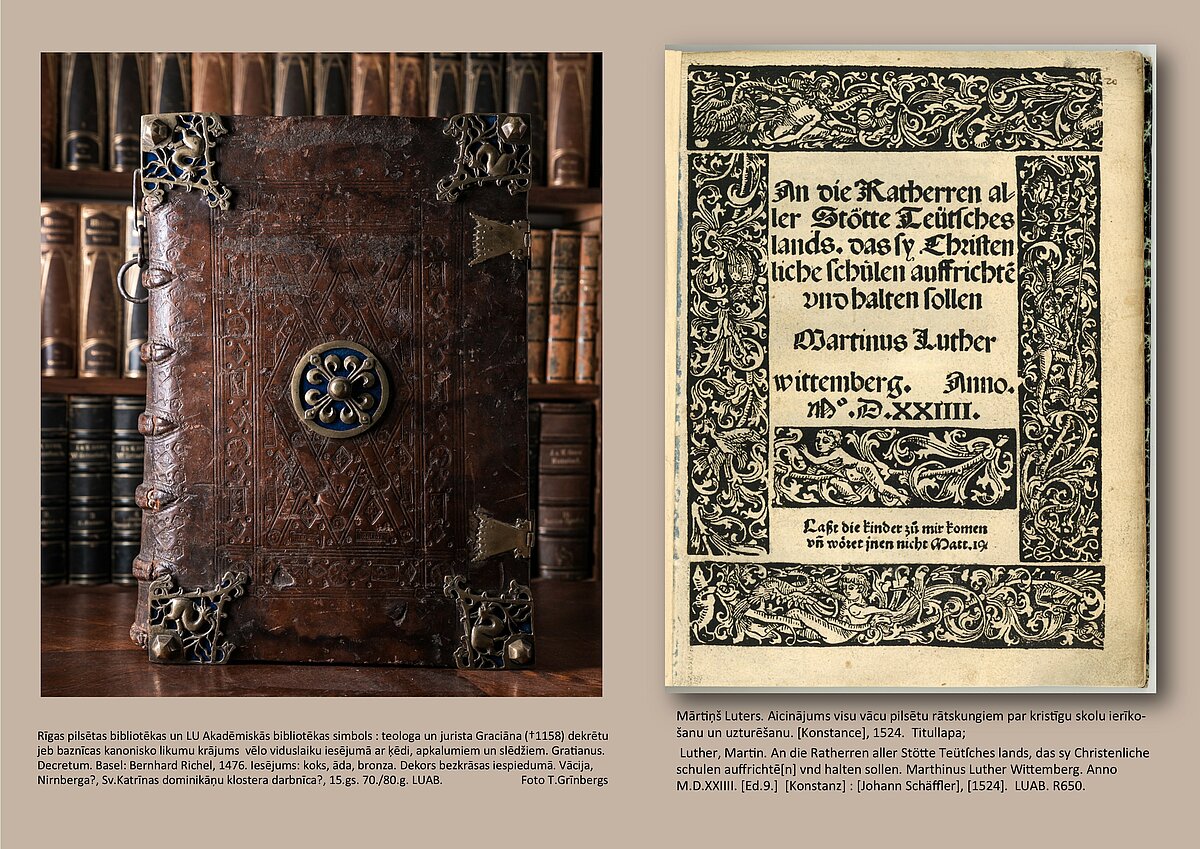 Rīgas pilsētas bibliotēkas un LU Akadēmiskās bibliotēkas simbols : teologa un jurista Graciāna (†1158) dekrētu
jeb baznīcas kanonisko likumu krājums vēlo viduslaiku iesējumā ar ķēdi, apkalumiem un slēdžiem. Gratianus.
Decretum. Basel: Bernhard Richel, 1476. Iesējums: koks, āda, bronza. Dekors bezkrāsas iespiedumā. Vācija,
Nirnberga?, Sv.Katrīnas dominikāņu klostera darbnīca?, 15.gs. 70./80.g. LUAB. Foto T.Grīnbergs
An die Ratherren al-
ler Stötte Teütſches
lands. das ſy Chriſten
liche ſchülen auffrichtē
vnd halten ſollen
Martinus Luther
wittemberg. Anno.
Mº.D.XXIIII.
Laßt die kinder zů mir komen
vñ wöret jnen nicht Matt.19
Mārtiņš Luters. Aicinājums visu vācu pilsētu rātskungiem par kristīgu skolu ierīko-
šanu un uzturēšanu. [Konstance], 1524. Titullapa;
Luther, Martin. An die Ratherren aller Stötte Teütſches lands, das sy Christenliche
schulen auffrichtē[n] vnd halten sollen. Marthinus Luther Wittemberg. Anno
M.D.XXIIII. [Ed.9.] [Konstanz] : [Johann Schäffler], [1524]. LUAB. R650.